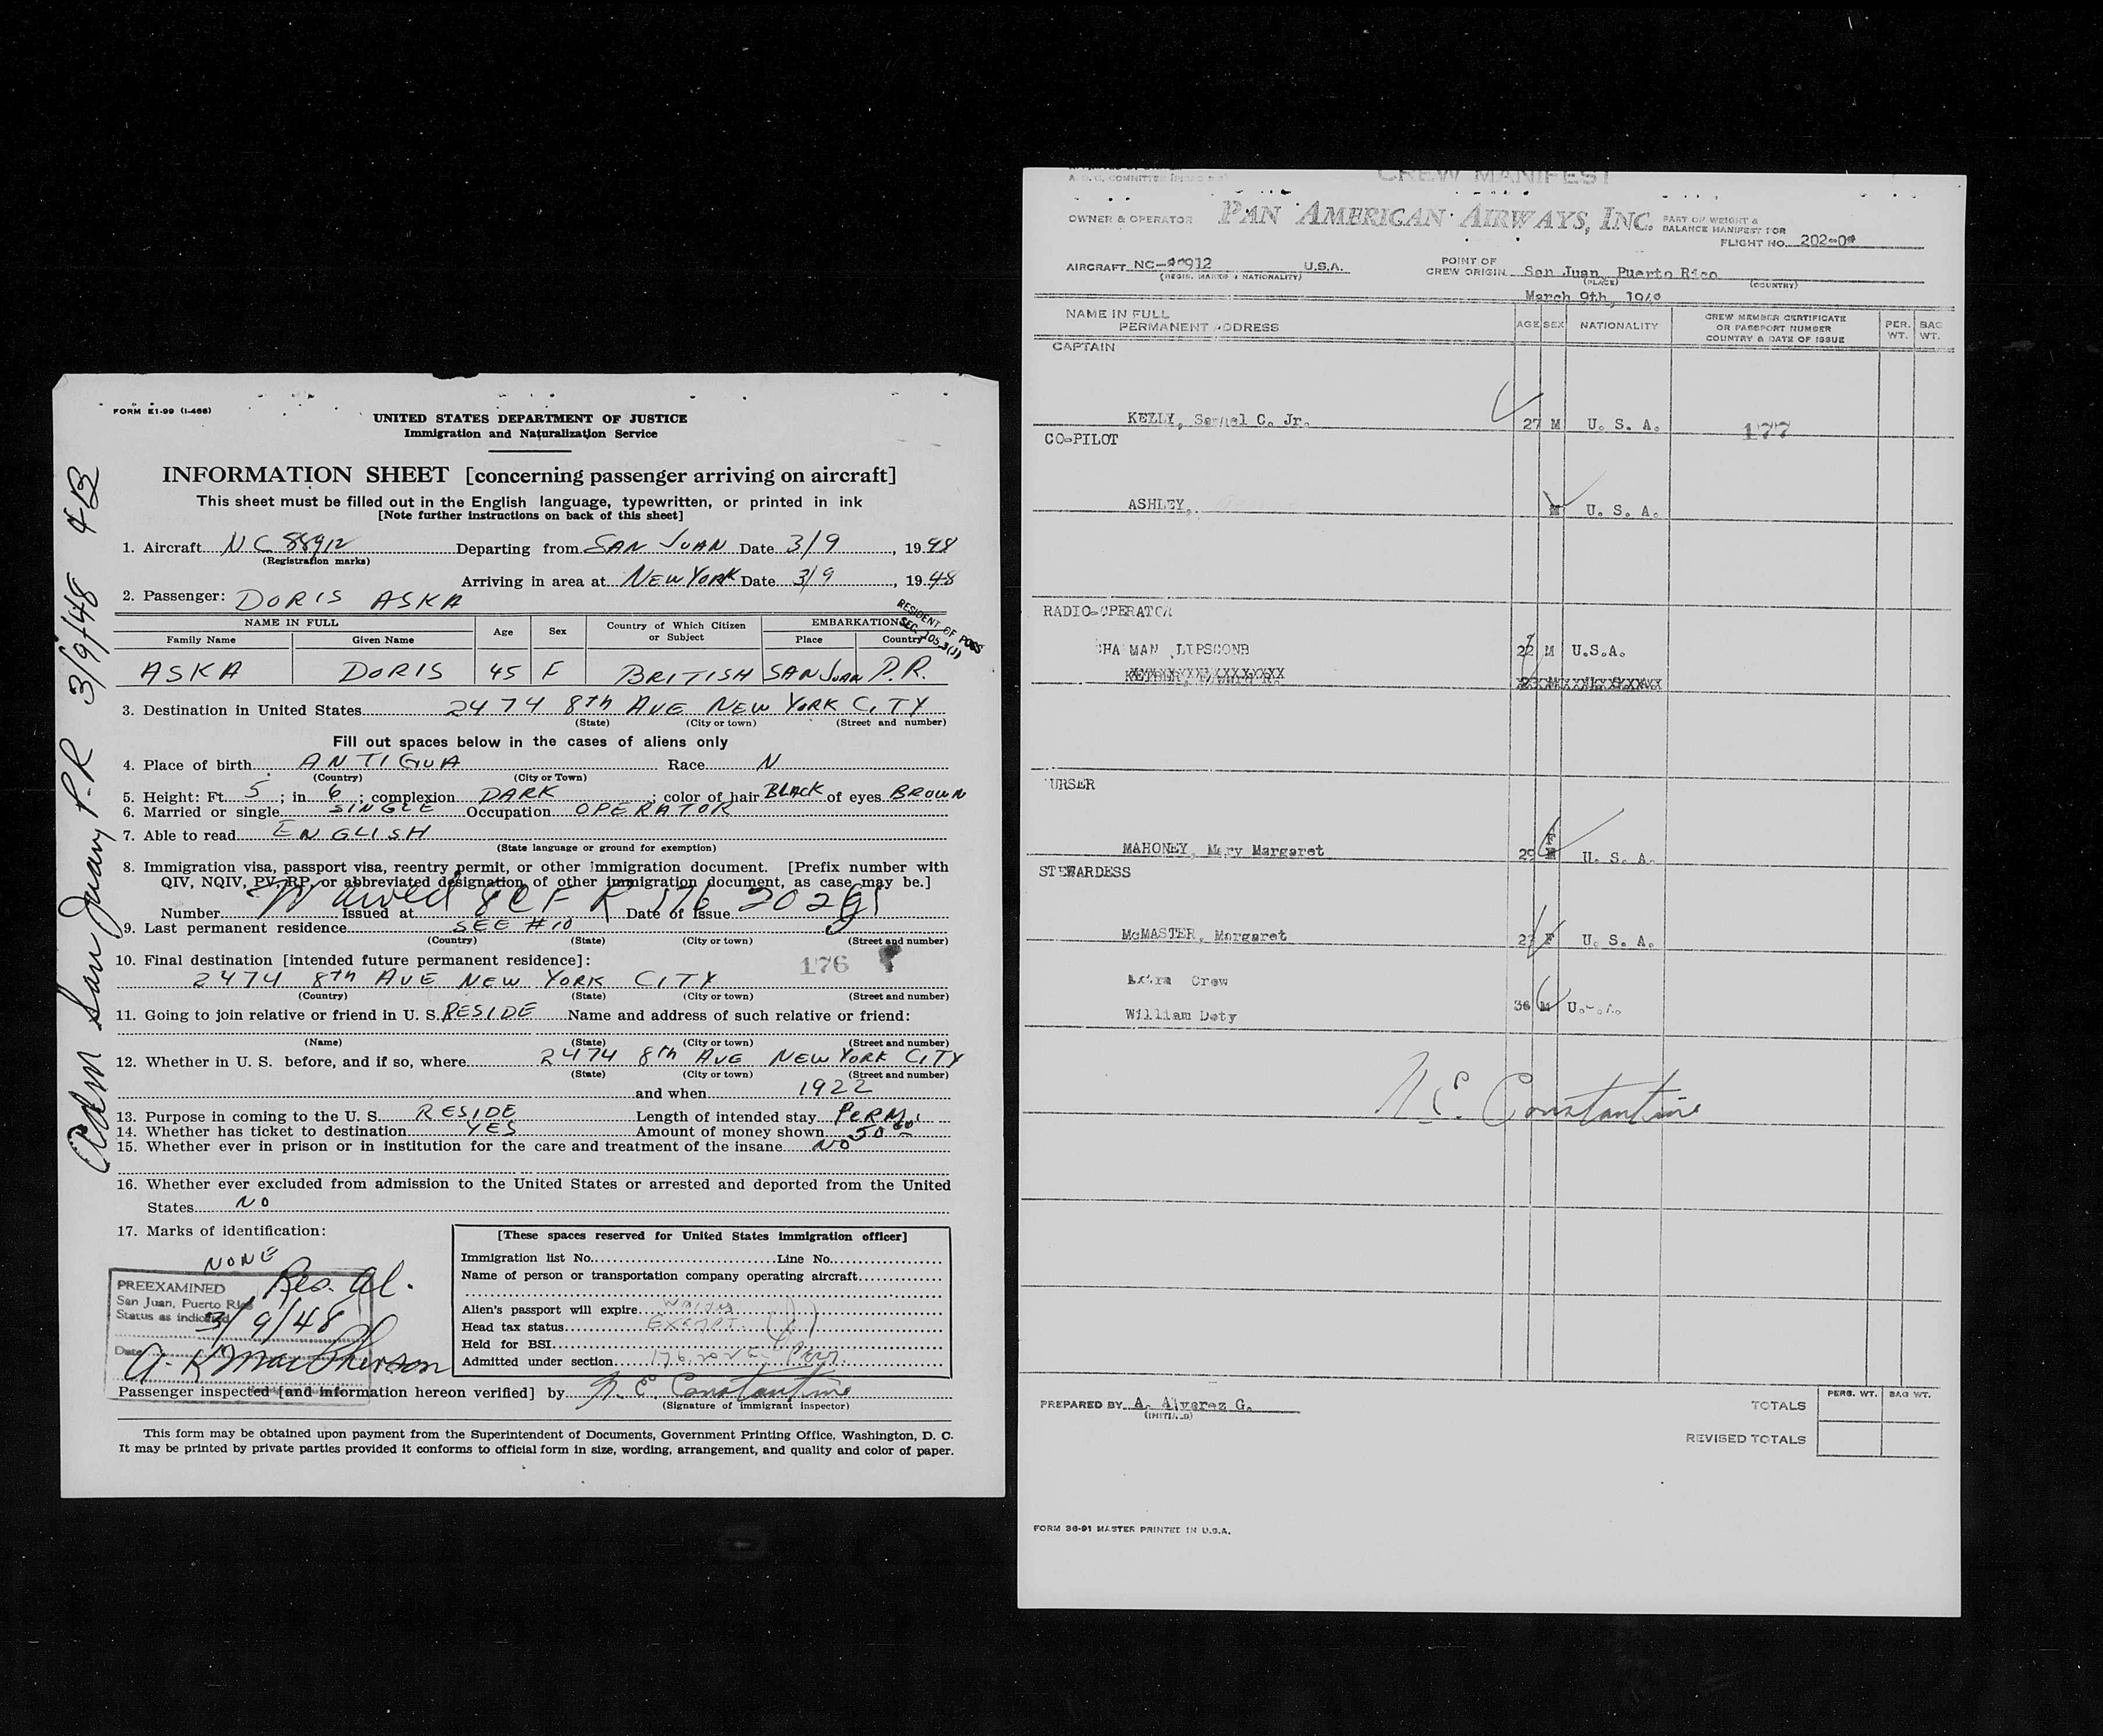 FORM E1-99 (I-466)
UNITED STATES DEPARTMENT OF JUSTICE
Immigration and Naturalization Service
INFORMATION SHEET [concerning passenger arriving on aircraft]
This sheet must be filled out in the English language, typewritten, or printed in ink
[Note further instructions on back of this sheet]
1. Aircraft NC 88912 Departing from SAN JUAN Date 3/9, 1948
(Registration marks)
Arriving in area at NEW YORK Date 3/9, 1948
2. Passenger: DORIS ASKA
RESIDENT OF POSS
SEC. 105.3(J)
NAME IN FULL Age Sex Country of Which Citizen or Subject EMBARKATION
Family Name Given Name Place Country
ASKA DORIS 45 F BRITISH SAN JUAN P.R.
3. Destination in United States 2474 8th AVE NEW YORK CITY
(State) (City or town) (Street and number)
Fill out spaces below in the cases of aliens only
4. Place of birth ANTIGUA Race N
(Country) (City or Town)
5. Height: Ft. 5; in 6; complexion DARK; color of hair BLACK of eyes BROWN
6. Married or single SINGLE Occupation OPERATOR
7. Able to read ENGLISH
(State language or ground for exemption)
8. Immigration visa, passport visa, reentry permit, or other immigration document. [Prefix number with
QIV, NQIV, PV, RP, or abbreviated designation of other immigration document, as case may be.]
Waived 8 CFR 176 202
Number Issued at Date of Issue
9. Last permanent residence SEE #10
(Country) (State) (City or town) (Street and number)
10. Final destination [intended future permanent residence]: 176
2474 8th AVE NEW YORK CITY
(Country) (State) (City or town) (Street and number)
11. Going to join relative or friend in U. S. RESIDE Name and address of such relative or friend:
(Name) (State) (City or town) (Street and number)
12. Whether in U. S. before, and if so, where 2474 8th AVE NEW YORK CITY
(State) (City or town) (Street and number)
and when 1922
13. Purpose in coming to the U. S. RESIDE Length of intended stay PERM.
14. Whether has ticket to destination YES Amount of money shown 50 00
15. Whether ever in prison or in institution for the care and treatment of the insane NO
16. Whether ever excluded from admission to the United States or arrested and deported from the United
States NO
17. Marks of identification:
NONE
Res. Al.
PREEXAMINED
San Juan, Puerto Rico
Status as indicated
3/9/48
Date
A. K. MacPherson
[These spaces reserved for United States immigration officer]
Immigration list No. Line No.
Name of person or transportation company operating aircraft
Alien's passport will expire
Head tax status EXEMPT
Held for BSI
Admitted under section
Passenger inspected [and information hereon verified] by N. E. Constantine
(Signature of immigrant inspector)
This form may be obtained upon payment from the Superintendent of Documents, Government Printing Office, Washington, D. C.
It may be printed by private parties provided it conforms to official form in size, wording, arrangement, and quality and color of paper.
Adm San Juan P.R 3/9/48 4B
CREW MANIFEST
OWNER & OPERATOR PAN AMERICAN AIRWAYS, INC. PART OF WEIGHT &
BALANCE MANIFEST FOR
FLIGHT NO.
AIRCRAFT U.S.A. POINT OF
CREW ORIGIN San Juan, Puerto Rico
(REGIS. MARKS & NATIONALITY) (PLACE) (COUNTRY)
March 9th,
NAME IN FULL
PERMANENT ADDRESS AGE SEX NATIONALITY CREW MEMBER CERTIFICATE
OR PASSPORT NUMBER
COUNTRY & DATE OF ISSUE PER. WT. BAG WT.
CAPTAIN
KELLY, Samuel C. Jr. 27 M U. S. A. 177
CO-PILOT
ASHLEY, M U. S. A.
RADIO-OPERATOR
LIPSCONB M U.S.A.
PURSER
MAHONEY, Mary Margaret 29 F U. S. A.
STEWARDESS
McMASTER, Margaret F U. S. A.
Extra Crew
William Doty 36 M
N E. Constantine
PREPARED BY A. Alvarez G.
(INITIALS)
PERS. WT. BAG WT.
TOTALS
REVISED TOTALS
FORM 36-91 MASTER PRINTED IN U.S.A.